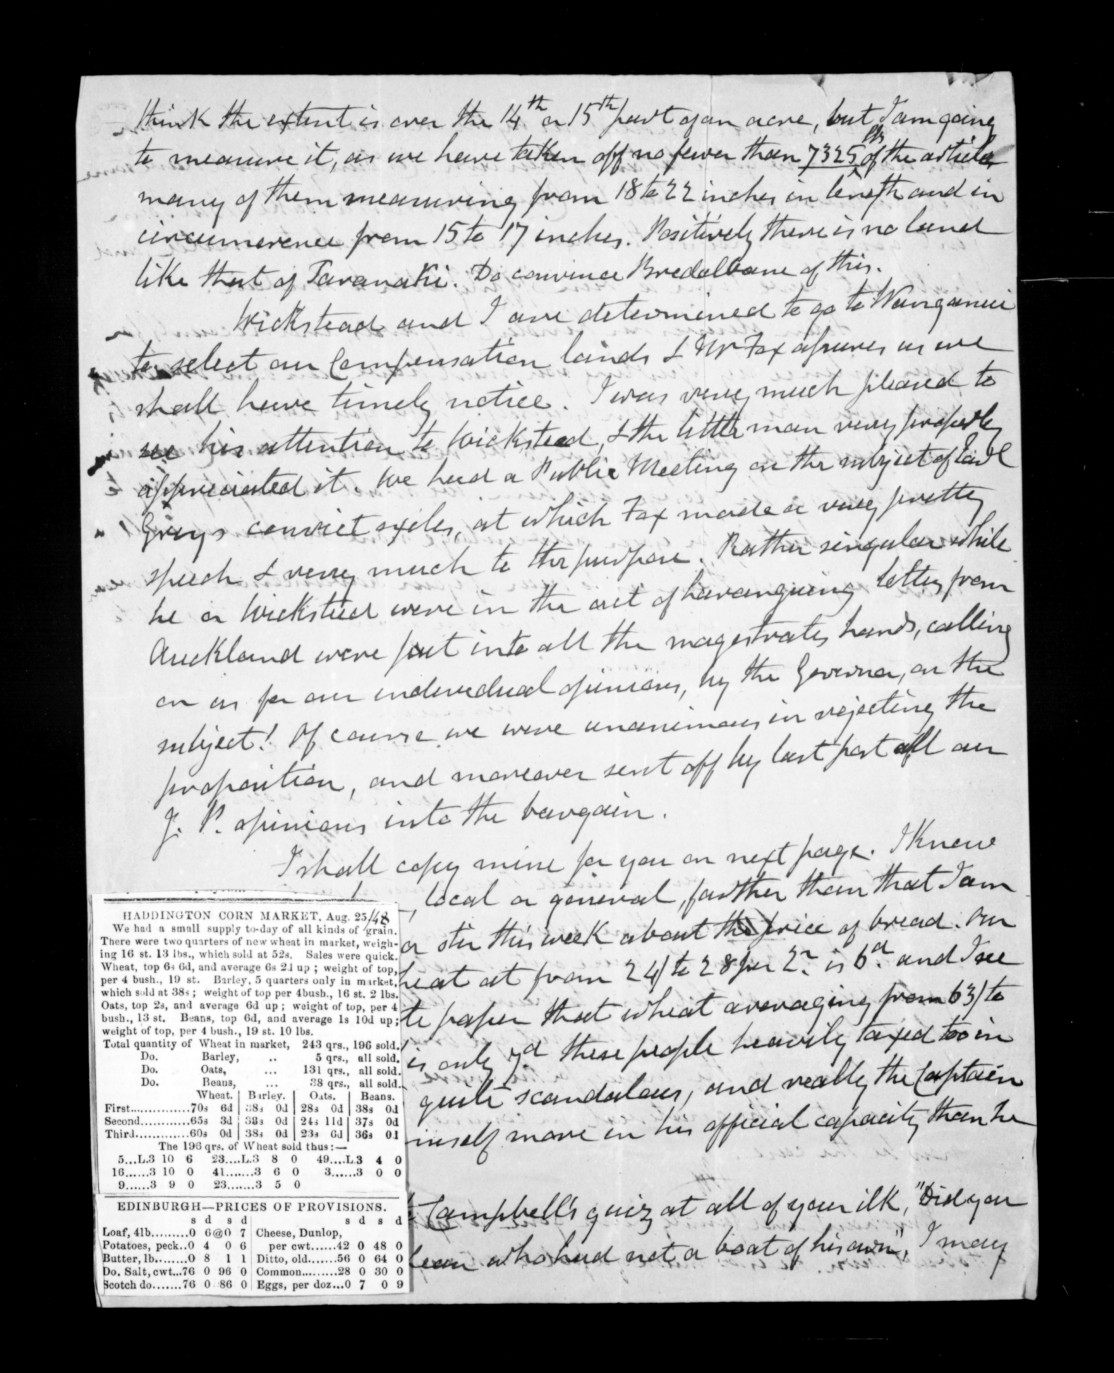 think the extent is over the 14th or 15th part of an acre, but I am going
to measure it, as we have taken off no fewer than 7325 lbs of the article,
many of them measuring from 18 to 22 inches in length and in
circumerence from 15 to 17 inches. Positively there is no land
like that of Taranaki. Do convince Bredalbane of this.
Wickstead and I are determined to go to Wanganui
to select our Compensation lands & Mr Fox assures us we
shall have timely notice. I was very much pleased to
see his attention to Wicksteed, & the little man very properly
appreciated it. We had a Public Meeting on the subject of Earl
Greys convict exiles, at which Fox made a very pretty
speech & very much to the purpose. Rather singular while
he or Wicksteed were in the act of haranguing letters from
Auckland were put into all the magistrates hands, calling
on us for our individual opinions, by the Governor, on the
subject! Of course we were unanimous in rejecting the
proposition, and moreover sent off by last post all our
J. P. opinions into the bargain.
I shall copy mine for you on next page. I Knew
, local or general, farther than that I am
a stir this week about the price of bread. Our
heat at from 24/ to 28 per 2. is 6d. and I see
te paper that wheat averaging from 63/ to
is only 7d these people heavily taxed too in
quite scandalous, and really the Captain
imself more in his official capacity than he
Campbell's quiz at all of your ilk, "Did you
lean who had not a boat of his own", I may
HADDINGTON CORN MARKET, Aug. 25/48
We had a small supply to-day of all kinds of grain.
There were two quarters of new wheat in market, weigh-
ing 16 st. 13 lbs., which sold at 52s. Sales were quick.
Wheat, top 6s 6d, and average 6s 2d up; weight of top,
per 4 bush., 19 st. Barley, 5 quarters only in market,
which sold at 38s; weight of top per 4bush., 16 st. 2 lbs.
Oats, top 2s, and average 6d up; weight of top, per 4
bush., 13 st. Beans, top 6d, and average 1s 10d up;
weight of top, per 4 bush., 19 st. 10 lbs.
Total quantity of Wheat in market, 243 qrs., 196 sold.
Do. Barley, .. 5 qrs., all sold.
Do. Oats, ... 131 qrs., all sold.
Do. Beans, ... 38 qrs., all sold.
Wheat. Barley. Oats. Beans.
First.............70s 6d 38s 0d 28s 0d 38s 0d
Second............65s 3d 38s 0d 24s 11d 37s 0d
Third.............60s 0d 38s 0d 23s 6d 36s 0d
The 196 qrs. of Wheat sold thus:—
5...L.3 10 6 23....L.3 8 0 49....L.3 4 0
16......3 10 0 41.......3 6 0 3......3 0 0
9......3 9 0 23.......3 5 0
EDINBURGH—PRICES OF PROVISIONS.
s d s d s d s d
Loaf, 4lb.........0 6@0 7 Cheese, Dunlop,
Potatoes, peck..0 4 0 6 per cwt......42 0 48 0
Butter, lb.......0 8 1 1 Ditto, old......56 0 64 0
Do. Salt, cwt...76 0 96 0 Common........28 0 30 0
Scotch do......76 0 86 0 Eggs, per doz...0 7 0 9